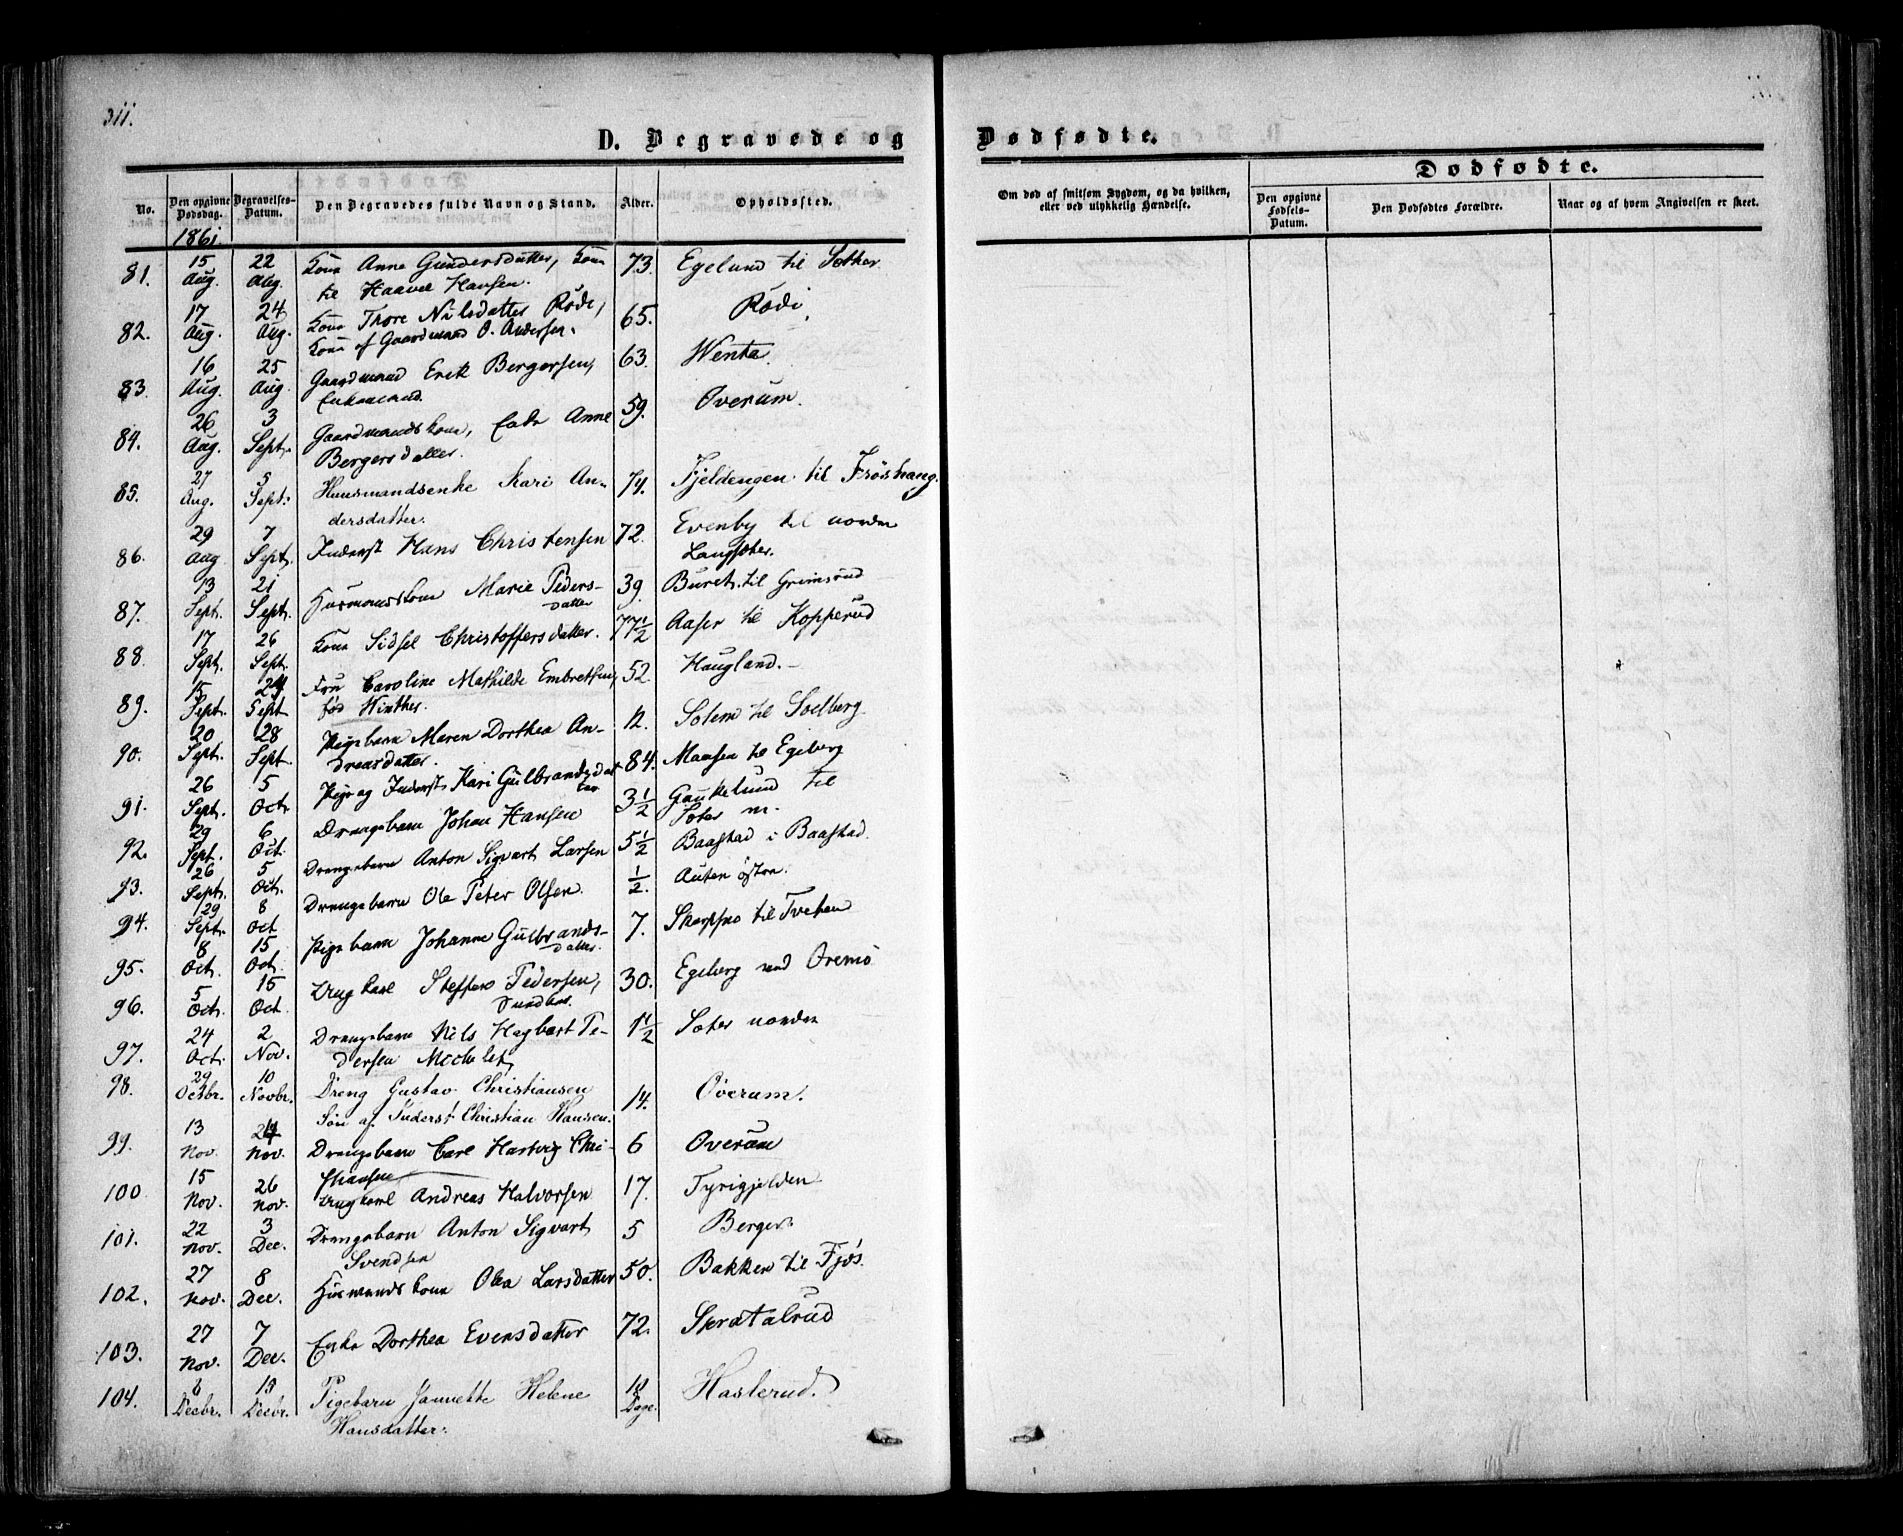 311.
D. Begravede og
Dødfødte.
Dødfødte.
No.
Den opgivne Dødsdag.
Begravelses-Datum.
Den Begravedes fulde Navn og Stand.
Alder.
Opholdssted.
Om død af smitsom Sygdom, og da hvilken, eller ved ulykkelig Hændelse.
Den opgivne Fødsels-Datum.
Den Dødfødtes Forældre.
Naar og af hvem Angivelsen er skeet.
1861.
81. 15 Aug. 22 Aug. Kone Anne Gundersdatter, Kone til Haavel Hansen. 73. Egelund til
82. 17 Aug. 24 Aug. Kone Thore Nilsdatter Rödi, Kone af Gaardmand O. Andersen. 65. Rödi,
83. 16 Aug. 25 Aug. Gaardmand Erik Bergersen, Enkemand. 63. Wenta.
84. 26 Aug. 3 Sept. Gaardmandskone, Enke Anne Bergersdatter. 59. Overum.
85. 27 Aug. 5 Sept. Huusmandsenke Kari Andersdatter. 74. Fjeldengen til Fröshaug.
86. 29 Aug 7 Sept. Inderst Hans Christensen 72. Evenby til norden Langsæter.
87. 13 Sept. 21 Sept. Husmandskone Marie Pedersdatter 39. Buret til Grimsrud
88. 17 Sept. 26 Sept. Kone Sidsel Christoffersdatter. 77½ Aaser til Kopperud
89. 15 Sept. 24 Sept Fru Caroline Mathilde Embretsen, fød Winther. 52. Haugland.
90. 20 Sept. 28 Sept. Pigebarn Maren Dorthea Andreasdatter. 12. Solem til Solberg
91. 26 Sept. 5 Oct. Pige og Inderst Kari Gulbrandsdatter 84. Monsen til Egeberg
92. 29 Sept. 6 Oct. Drengebarn Johan Hansen 3½ Gaukelund til Soter m.
93. 26 Sept. 5 Oct. Drengebarn Anton Sigvart Larsen 5½ Baastad i Baastad.
94. 29 Sept. 8 Oct Drengebarn Ole Peter Olsen. ½. Auten östre.
95. 8 Oct. 15 Oct. Pigebarn Johanne Gulbrandsdatter. 7. Skarpsno til Tveten
96. 5 Oct. 15 Oct. Ungkarl Steffen Pedersen, 30. Egeberg
97. 24 Oct. 2 Nov. Drengebarn Nils Hagbart Pedersen Michelet, 1½ Soter norden
98. 29 Octbr. 10 Novbr. Dreng Gustav Christiansen Søn af Inderst Christian Hansen. 14. Overum.
99. 13 Nov. 24 Nov. Drengebarn Carl Hartvig Christiansen 6 Overum
100 15 Nov. 26 Nov. Ungkarl Andreas Halvorsen 17. Tyrigjelden
101. 22 Nov. 3 Dec. Drengebarn Anton Sigvart Svendsen 5 Berger.
102. 27 Nov. 8 Dec. Husmandskone Olea Larsdatter 50. Bakken til Fjös.
103. 27 Nov. 7 Dec. Enke Dorthea Evensdatter 72. Skratalrud
104. 8 Decbr. 19 Decbr. Pigebarn Jannette Helene Hansdatter. 18 Dage. Haslerud.